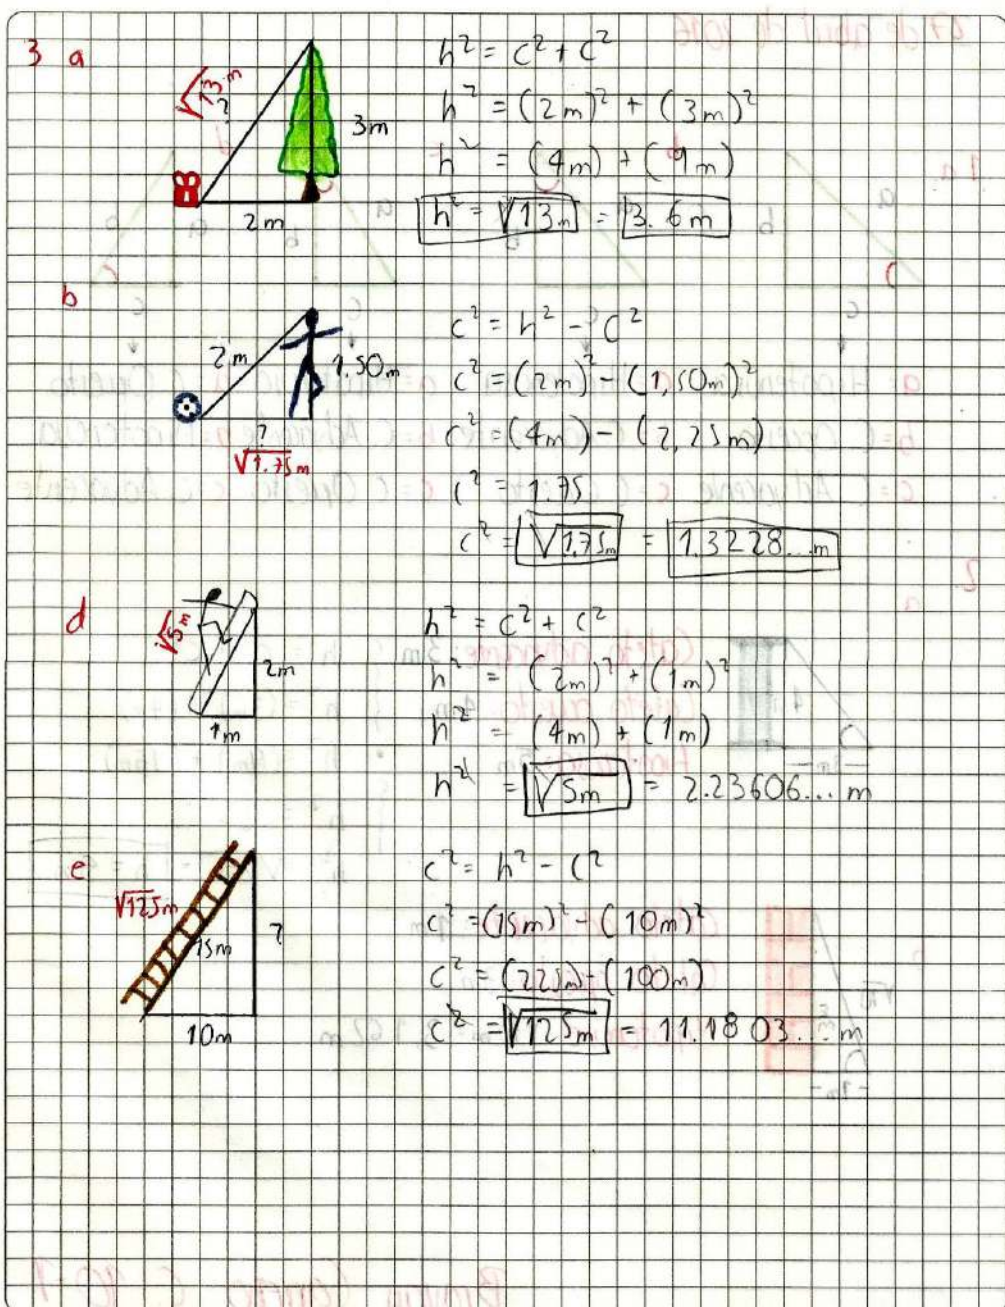 3 a
h² = c² + c²
√13 m
?
3m
2m
h² = (2m)² + (3m)²
h² = (4m) + (9m)
h² = √13m = 3.6m
b
2m
1.50m
?
√1.75m
c² = h² - c²
c² = (2m)² - (1,50m)²
c² = (4m) - (2,25m)
c² = 1.75
c² = √1.75m = 1.3228...m
d
√5m
2m
1m
h² = c² + c²
h² = (2m)² + (1m)²
h² = (4m) + (1m)
h² = √5m = 2.23606... m
e
√125m
15m
?
10m
c² = h² - c²
c² = (15m)² - (10m)²
c² = (225m) - (100m)
c² = √125m = 11.1803... m